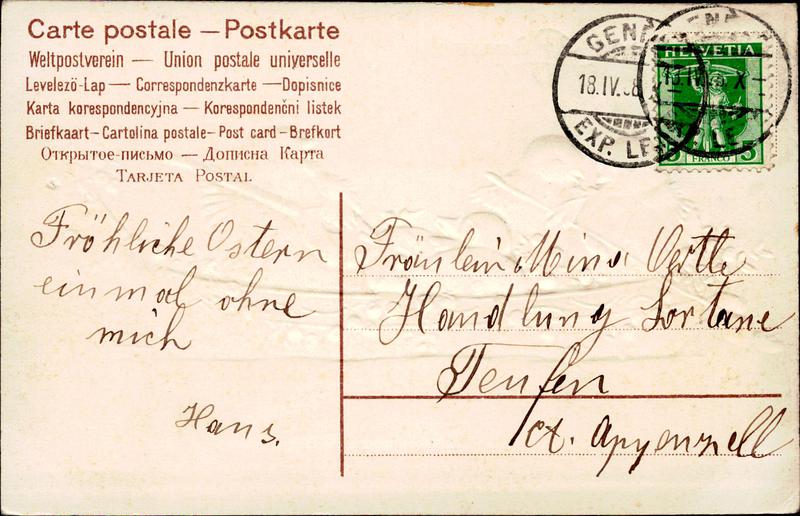 Carte postale — Postkarte
Weltpostverein — Union postale universelle
Levelező-Lap — Correspondenzkarte — Dopisnice
Karta korespondencyjna — Korespondenční listek
Briefkaart — Cartolina postale — Post card — Brefkort
Открытое-письмо — Дописна Карта
TARJETA POSTAL
GENÈ
18.IV.
EXP. LE
HELVETIA
FRANCO
Fröhliche Ostern
einmal ohne
mich
Hans.
Fräulein Mina Oertle
Handlung
Teufen
Ct. Appenzell